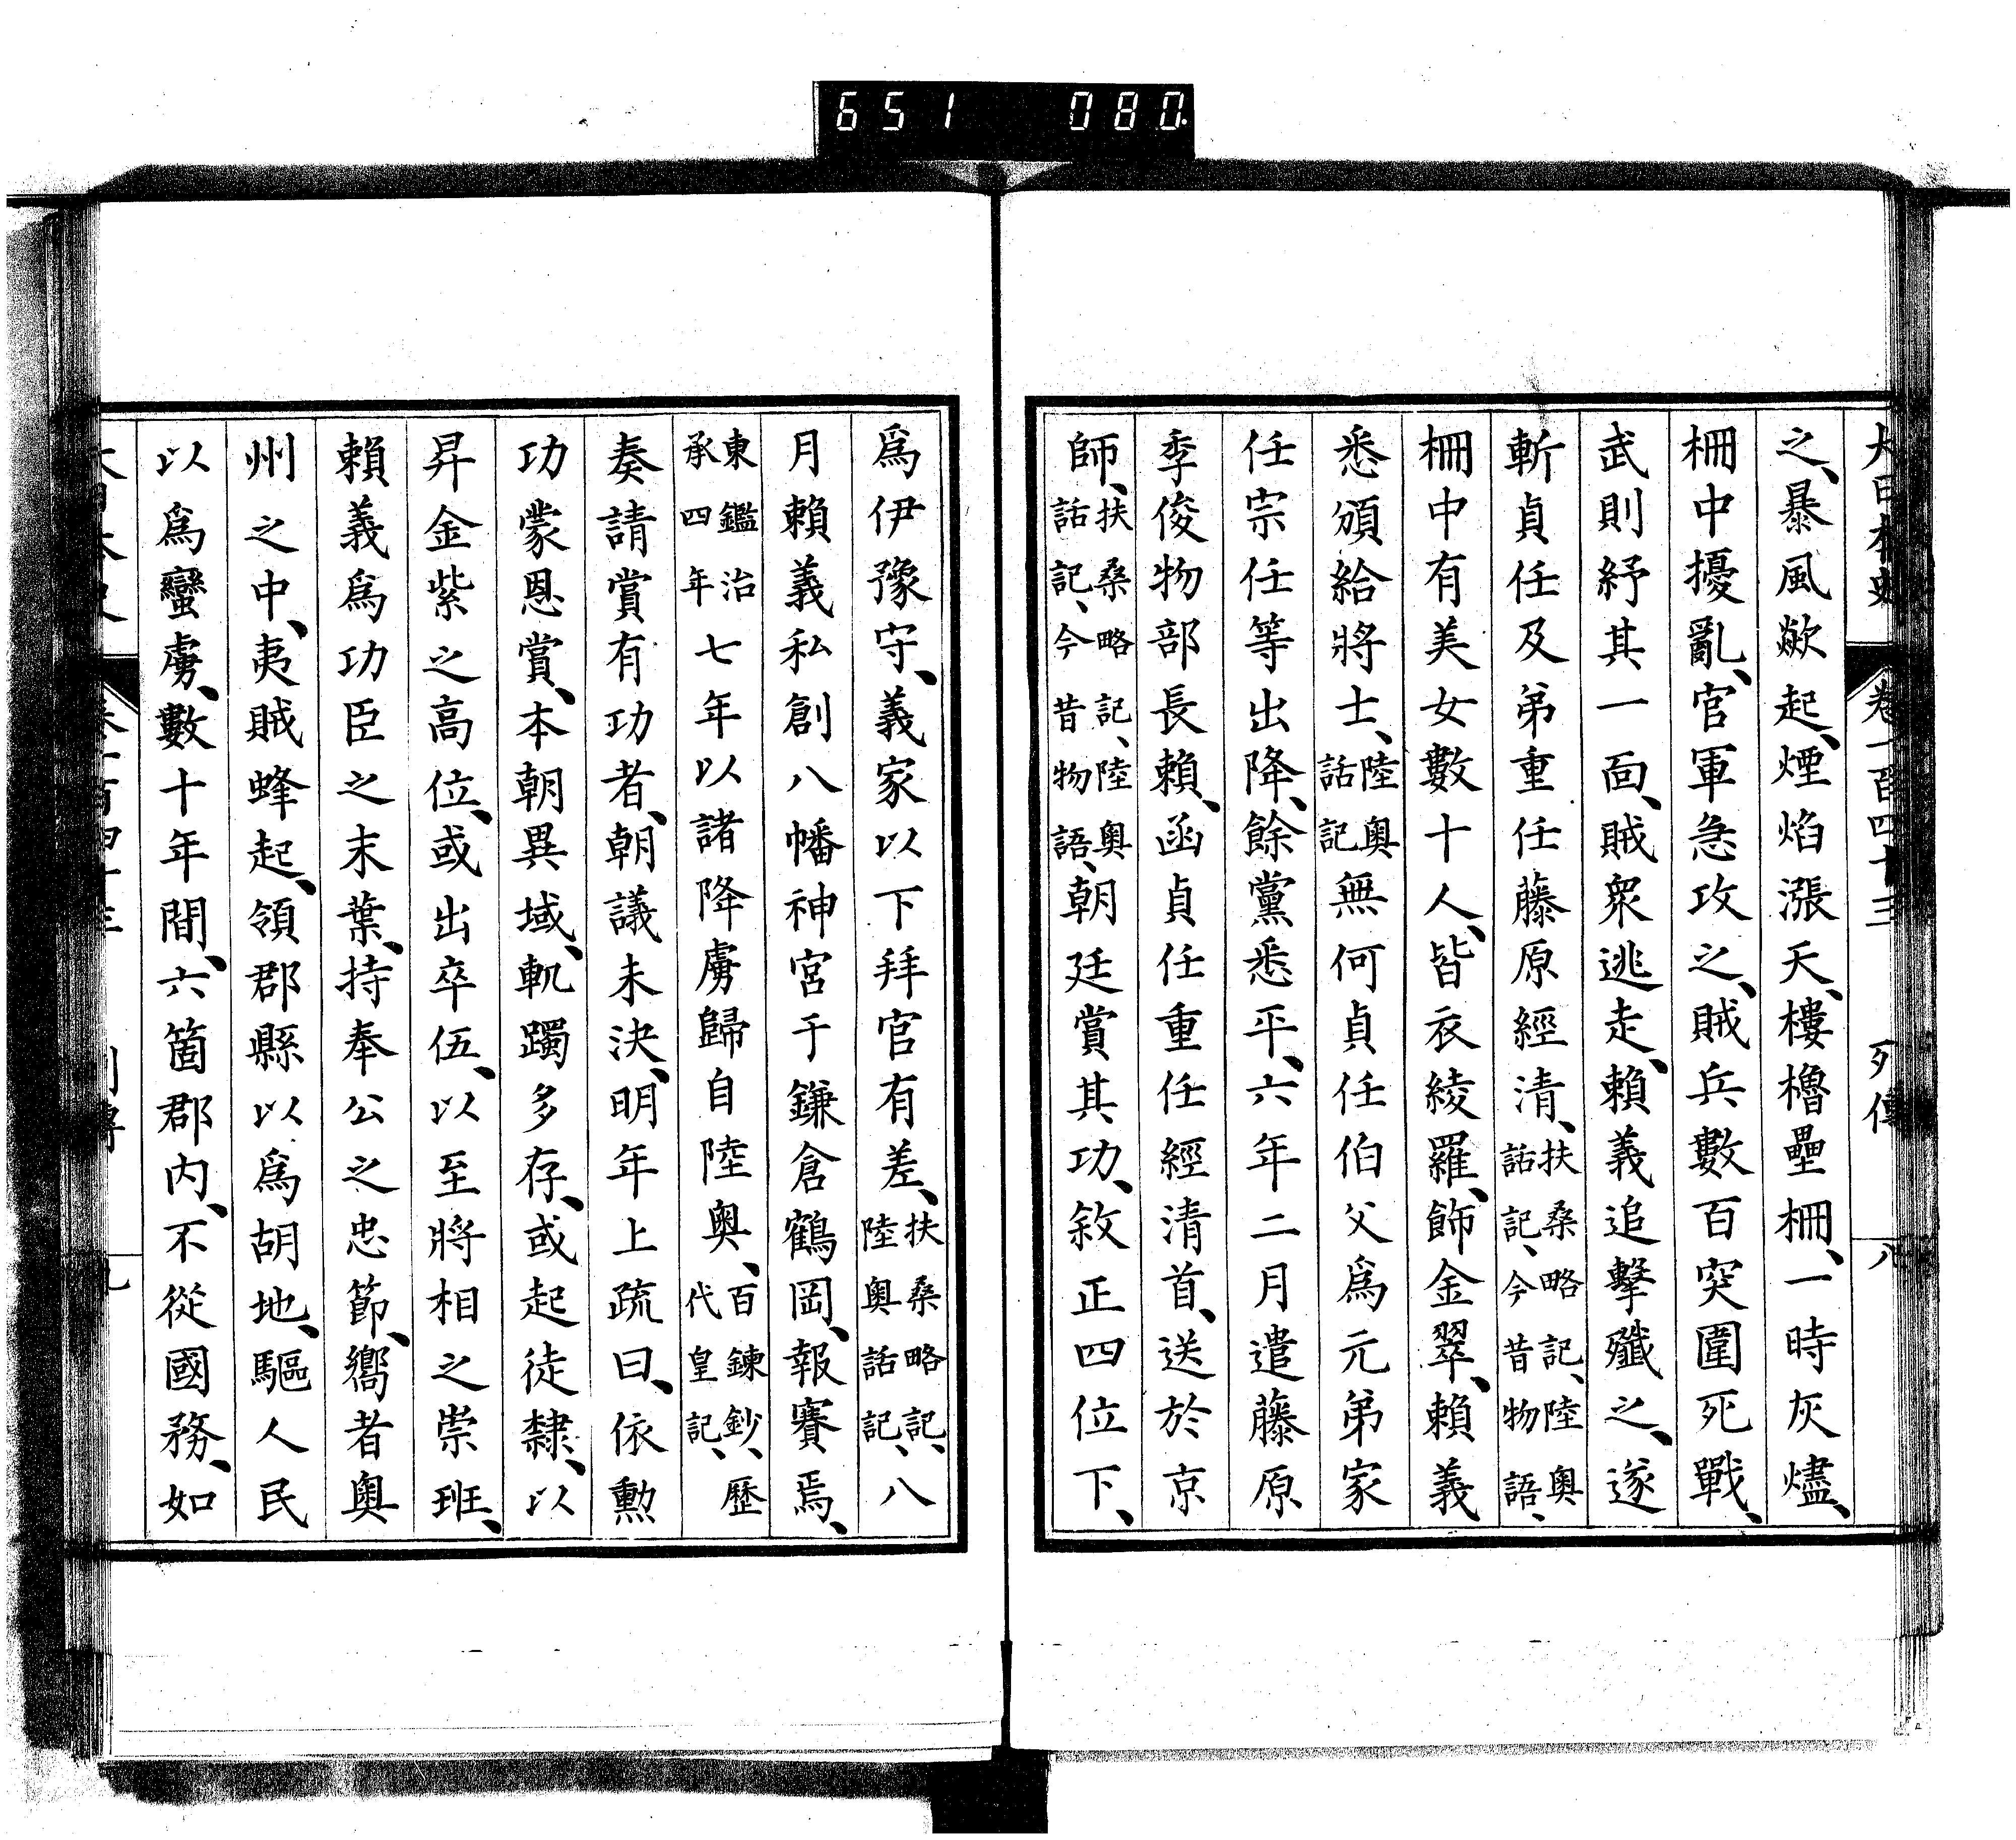 651 080
大日本史 卷一百四十三 列傳 八
之、暴風歘起、煙焰漲天、樓櫓壘柵、一時灰燼、
柵中擾亂、官軍急攻之、賊兵數百突圍死戰、
武則紓其一面、賊眾逃走、賴義追擊殲之、遂
斬貞任及弟重任藤原經清、扶桑略記、陸奧話記、今昔物語、
柵中有美女數十人、皆衣綾羅、飾金翠、賴義
悉頒給將士、陸奧話記無何貞任伯父爲元弟家
任宗任等出降、餘黨悉平、六年二月遣藤原
季俊物部長賴、函貞任重任經清首、送於京
師、扶桑略記、陸奧話記、今昔物語、朝廷賞其功、敘正四位下、
爲伊豫守、義家以下拜官有差、扶桑略記、陸奧話記、八
月賴義私創八幡神宮于鎌倉鶴岡、報賽焉、
東鑑治承四年七年以諸降虜歸自陸奧、百鍊鈔、歷代皇記、
奏請賞有功者、朝議未決、明年上疏曰、依勲
功蒙恩賞、本朝異域、軌躅多存、或起徒隸、以
昇金紫之高位、或出卒伍、以至將相之崇班、
賴義爲功臣之末葉、持奉公之忠節、嚮者奧
州之中、夷賊蜂起、領郡縣以爲胡地、驅人民
以爲蠻虜、數十年間、六箇郡内、不從國務、如